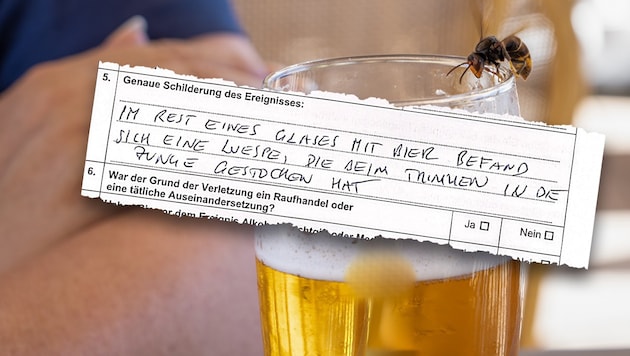 5. Genaue Schilderung des Ereignisses:
IM REST EINES GLASES MIT BIER BEFAND
SICH EINE WESPE, DIE BEIM TRINKEN IN DIE
ZUNGE GESTOCHEN HAT
6. War der Grund der Verletzung ein Raufhandel oder
eine tätliche Auseinandersetzung?
Ja ☐ Nein ☐
vor dem Ereignis oder